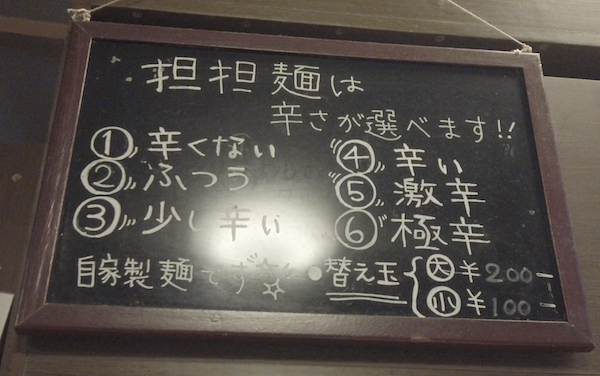 担担麺は
辛さが選べます!!
① 辛くない
② ふつう
③ 少し辛い
④ 辛い
⑤ 激辛
⑥ 極辛
自家製麺です☆
●替え玉 { 大 ¥200-
小 ¥100-